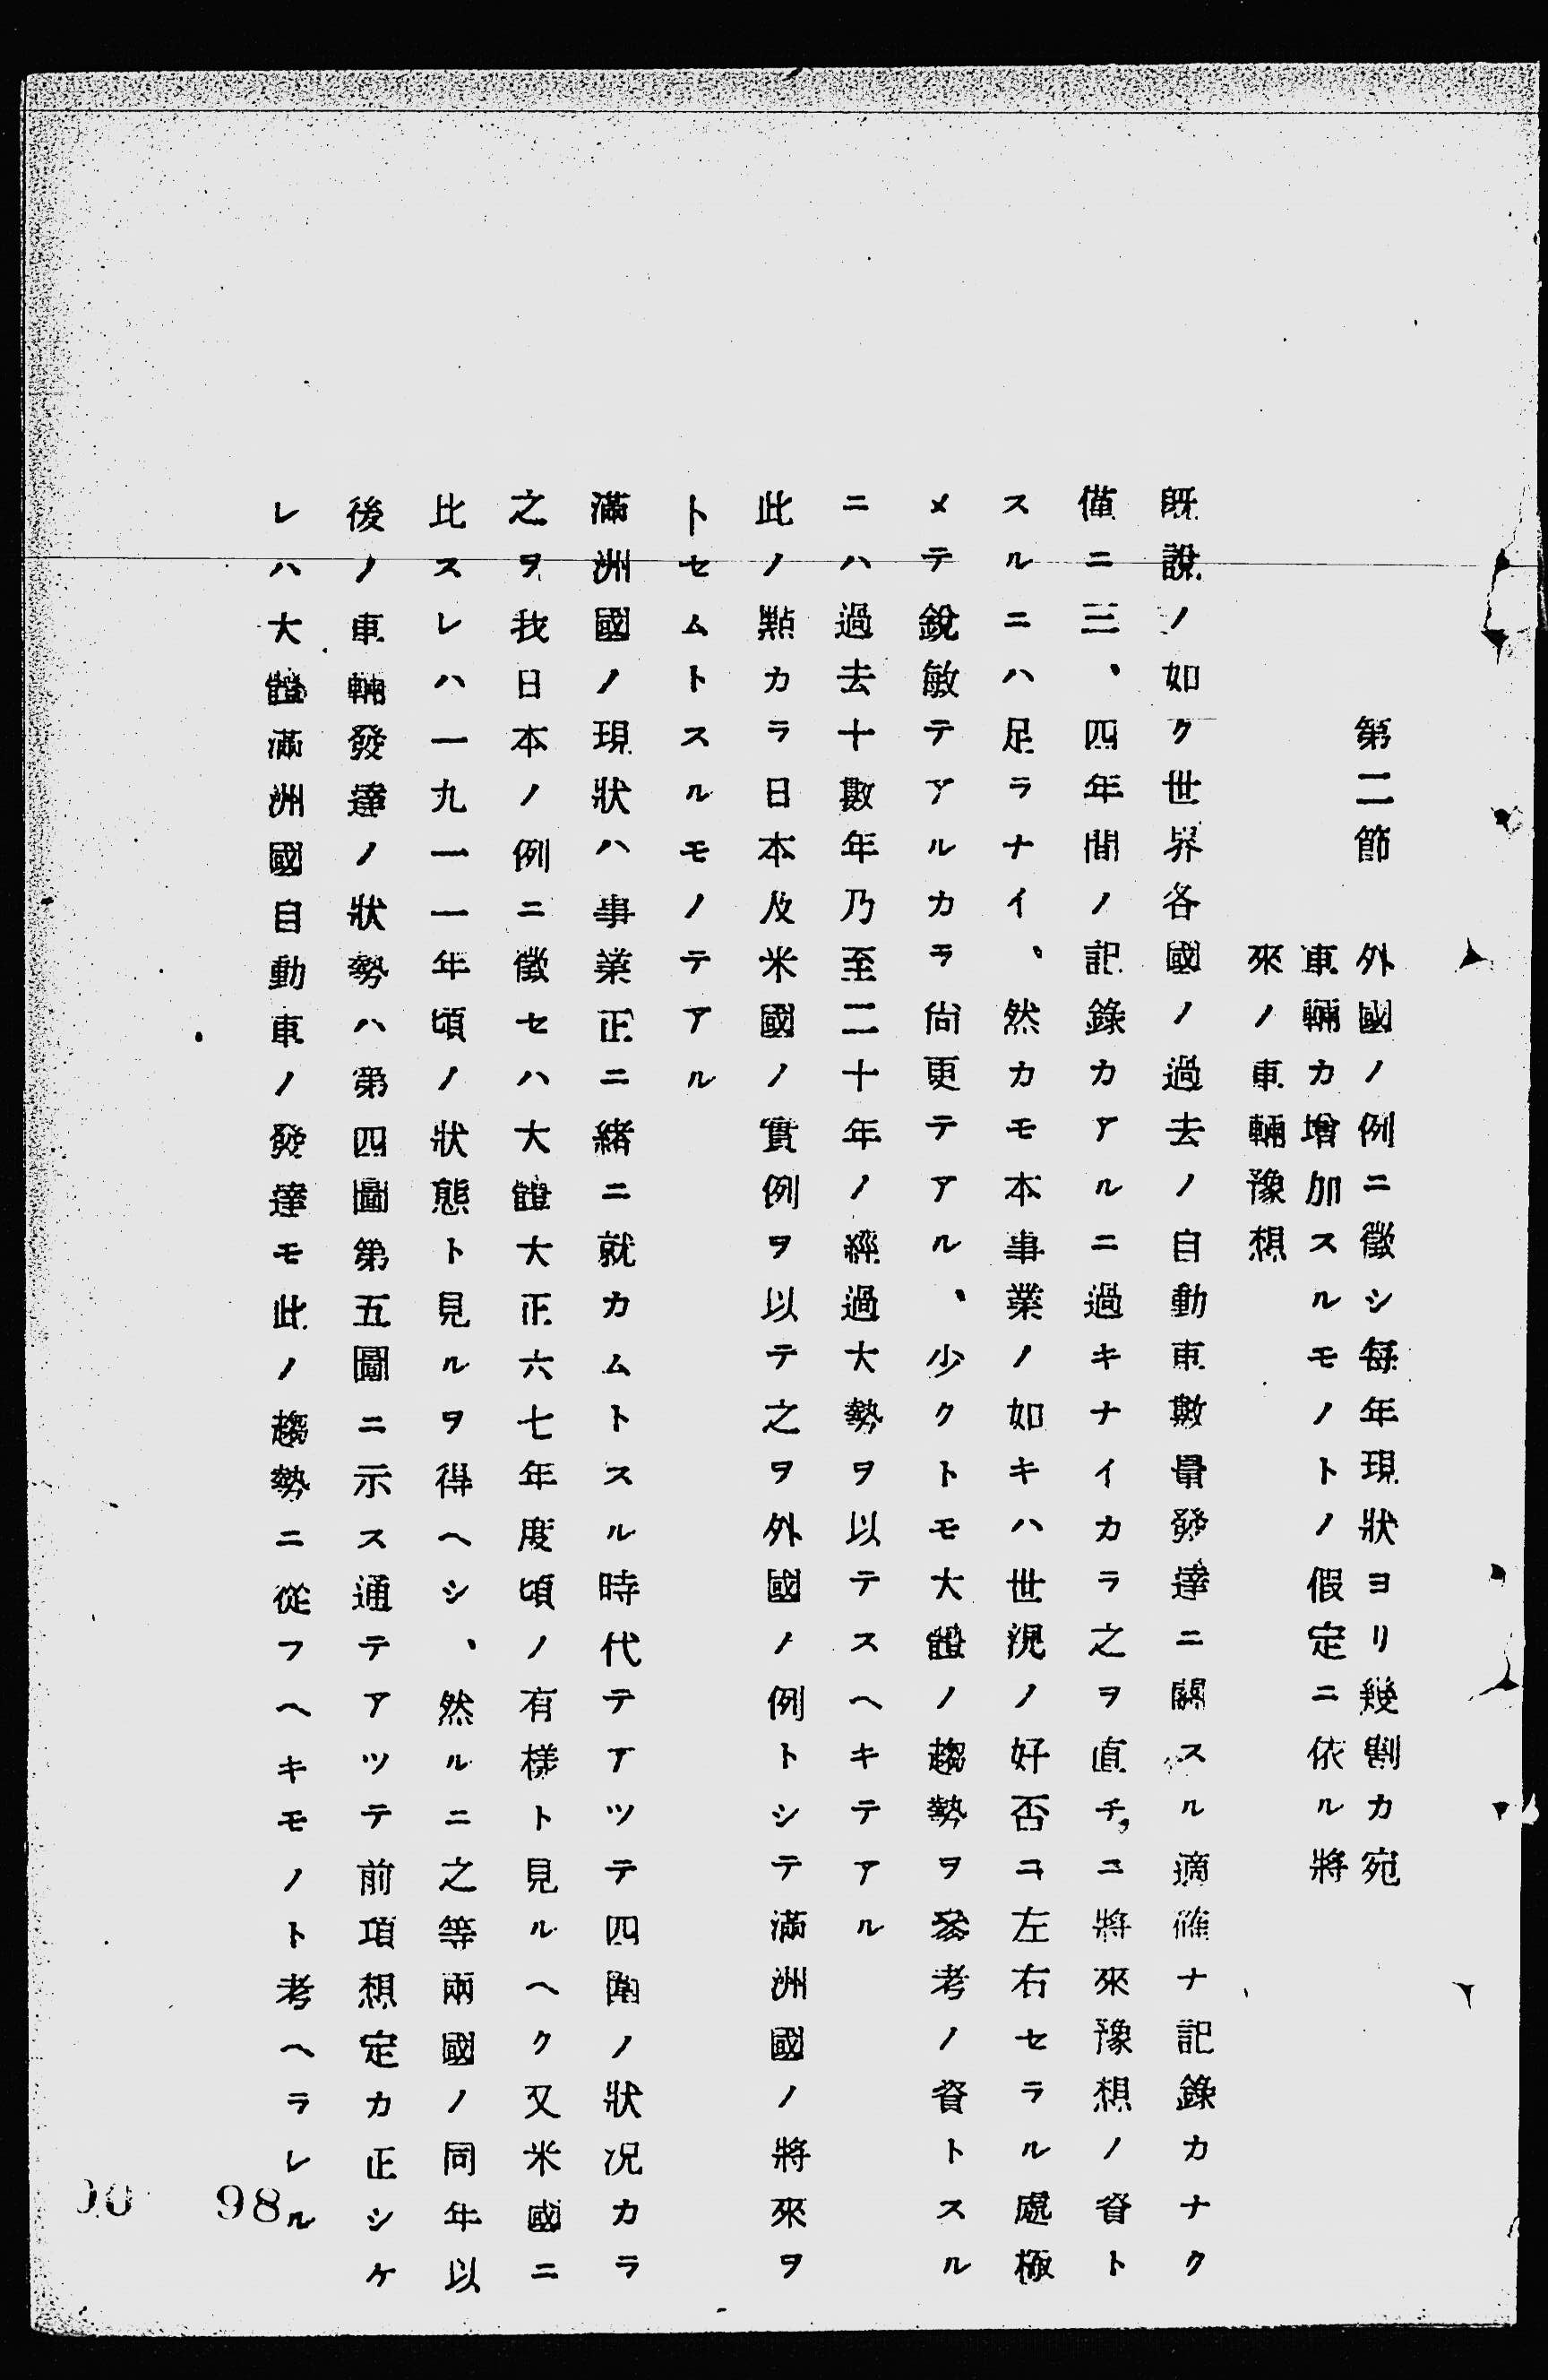 第二節　外國ノ例ニ徵シ每年現狀ヨリ幾割カ宛
車輛カ增加スルモノトノ假定ニ依ル將
來ノ車輛豫想
既說ノ如ク世界各國ノ過去ノ自動車數量發達ニ關スル適確ナ記錄カナク
僅ニ三、四年間ノ記錄カアルニ過キナイカラ之ヲ直チニ將來豫想ノ資ト
スルニハ足ラナイ、然カモ本事業ノ如キハ世況ノ好否コ左右セラル處極
メテ銳敏テアルカラ尙更テアル、少クトモ大體ノ趨勢ヲ參考ノ資トスル
ニハ過去十數年乃至二十年ノ經過大勢ヲ以テスヘキテアル
此ノ點カラ日本及米國ノ實例ヲ以テ之ヲ外國ノ例トシテ滿洲國ノ將來ヲ
トセムトスルモノテアル
滿洲國ノ現狀ハ事業正ニ緖ニ就カムトスル時代テアツテ四圍ノ狀况カラ
之ヲ我日本ノ例ニ徵セハ大體大正六七年度頃ノ有樣ト見ルヘク又米國ニ
比スレハ一九一一年頃ノ狀態ト見ルヲ得ヘシ、然ルニ之等兩國ノ同年以
後ノ車輛發達ノ狀勢ハ第四圖第五圖ニ示ス通テアツテ前項想定カ正シケ
レハ大體滿洲國自動車ノ發達モ此ノ趨勢ニ從フヘキモノト考ヘラレル
98